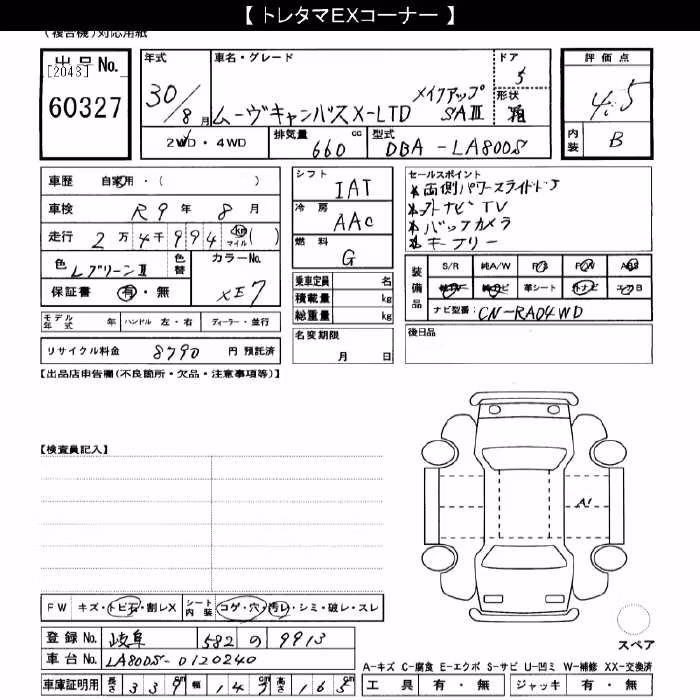 【 トレタマEXコーナー 】
(複合機)対応用紙
出品No.
[2043]
60327
年式
30/8月
車名・グレード
ムーヴキャンバス X-LTD メイクアップ SAⅢ
ドア
5
形状
箱
評価点
4.5
内装
B
2WD・4WD
排気量
660 cc
型式
DBA - LA800S
車歴 自家用・( )
車検 R9年 8月
走行 2万4千994 km マイル ( )
色 Lグリーンⅱ
色替
カラーNo.
XE7
保証書 有・無
シフト
IAT
冷房
AAC
燃料
G
セールスポイント
*両側パワースライドドア
*外ナビTV
*バックカメラ
*キーフリー
装備品
S/R 純A/W P/S P/W ABS
純ナビ 革シート 外ナビ エアB
ナビ型番: CN-RA04WD
乗車定員 名
積載量 kg
総重量 kg
モデル年式 年 ハンドル 左・右 ディーラー・並行
名変期限
月 日
後日品
リサイクル料金 8790 円 預託済
【出品店申告欄(不良箇所・欠品・注意事項等)】
【検査員記入】
A1
FW キズ・トビ石・割レX シート内装 コゲ・穴・汚レ・シミ・破レ・スレ
スペア
登録No. 岐阜 582 の 9913
車台No. LA800S-0120240
A-キズ C-腐食 E-エクボ S-サビ U-凹ミ W-補修 XX-交換済
車庫証明用 長さ 339 幅 147 高さ 165 cm
工具 有・無 ジャッキ 有・無